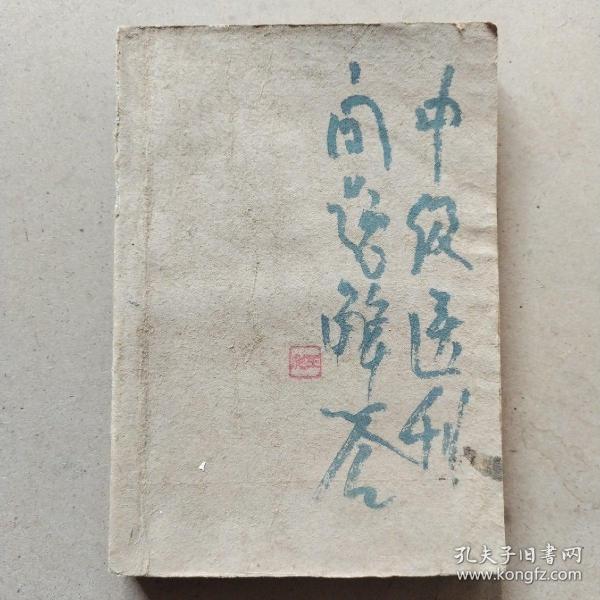 中级医刊
问题解答
孔夫子旧书网
www.kongfz.com